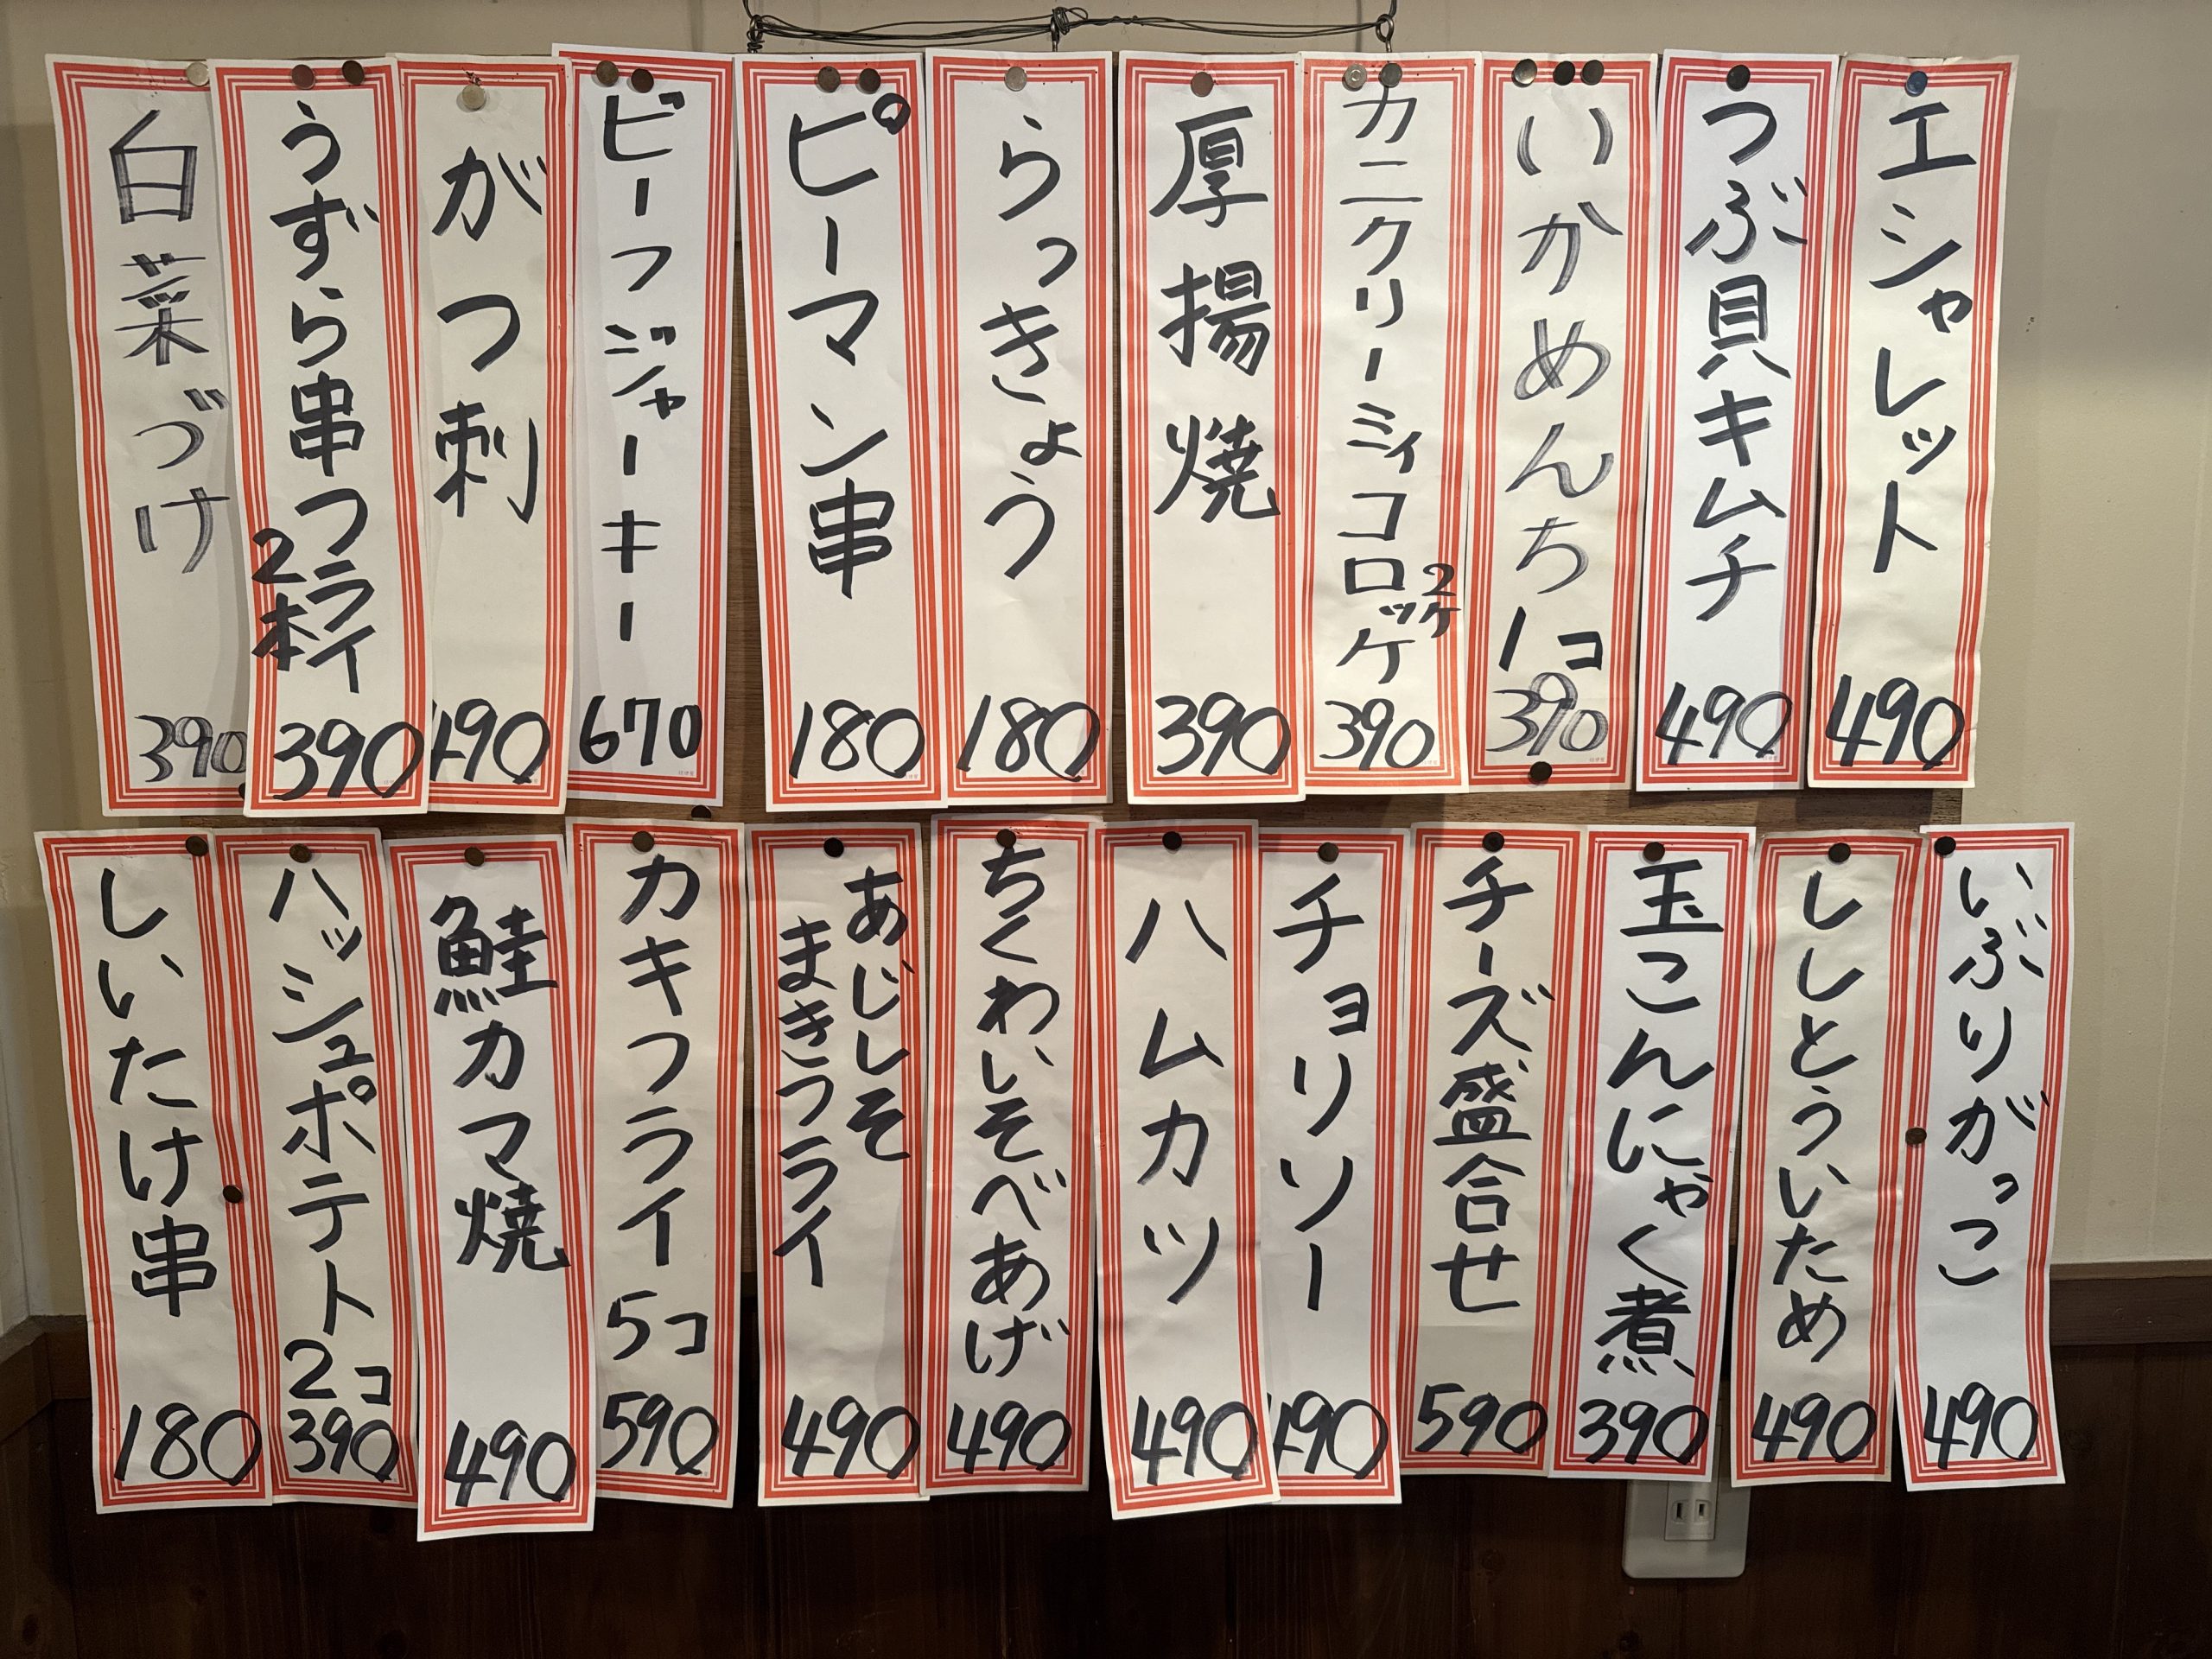 エシャレット
490
つぶ貝キムチ
490
いかめんち
1コ
390
カニクリーミィコロッケ
2ケ
390
厚揚焼
390
らっきょう
180
ピーマン串
180
ビーフジャーキー
670
がつ刺
490
うずら串フライ
2本
390
白菜づけ
390
いぶりがっこ
490
ししとういため
490
玉こんにゃく煮
390
チーズ盛合せ
590
チョリソー
490
ハムカツ
490
ちくわいそべあげ
490
あじしそ
まきフライ
490
カキフライ
5コ
590
鮭カマ焼
490
ハッシュポテト
2コ
390
しいたけ串
180